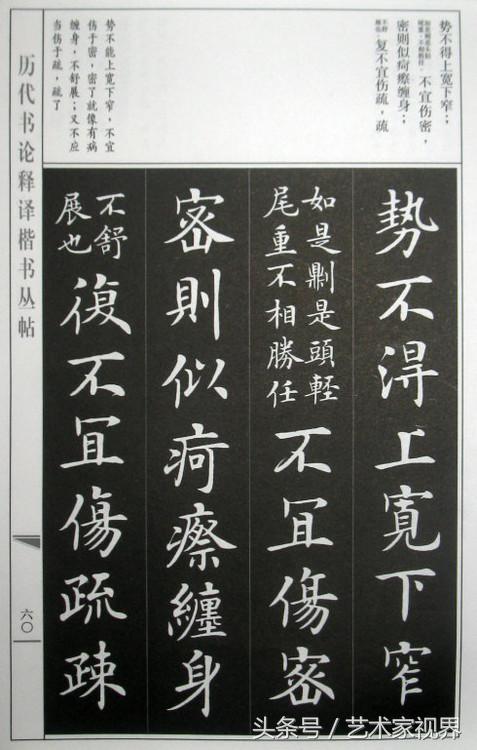 势不得上宽下窄；
如是则是头轻
尾重，不相胜任
不宜伤密，
密则似疴瘵缠身；
不舒
展也
复不宜伤疏，疏
势不能上宽下窄，不宜
伤于密，密了就像有病
缠身，不舒展；又不应
当伤于疏，疏了
勢不得上寬下窄
如是則是頭輕
尾重不相勝任
不冝傷密
密則似疴瘵纏身
不舒
展也
復不冝傷疏疎
历代书论释译楷书丛帖
六〇
头条号 / 艺术家视界